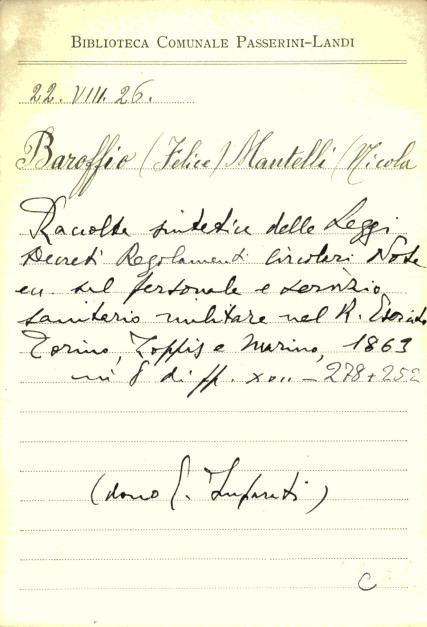 BIBLIOTECA COMUNALE PASSERINI-LANDI
22. VIII. 26.
Baroffio (Felice) Mantelli (Nicola
Raccolta sintetica delle Leggi
Decreti Regolamenti Circolari Note
ecc. sul personale e servizio
sanitario militare nel R. Esercito
Torino, Zoppis e Marino, 1863
in 8 di pp. XVII - 278 + 252
(dono
C